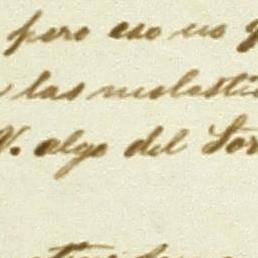 pero eso no
las molesti
V. algo del Sor